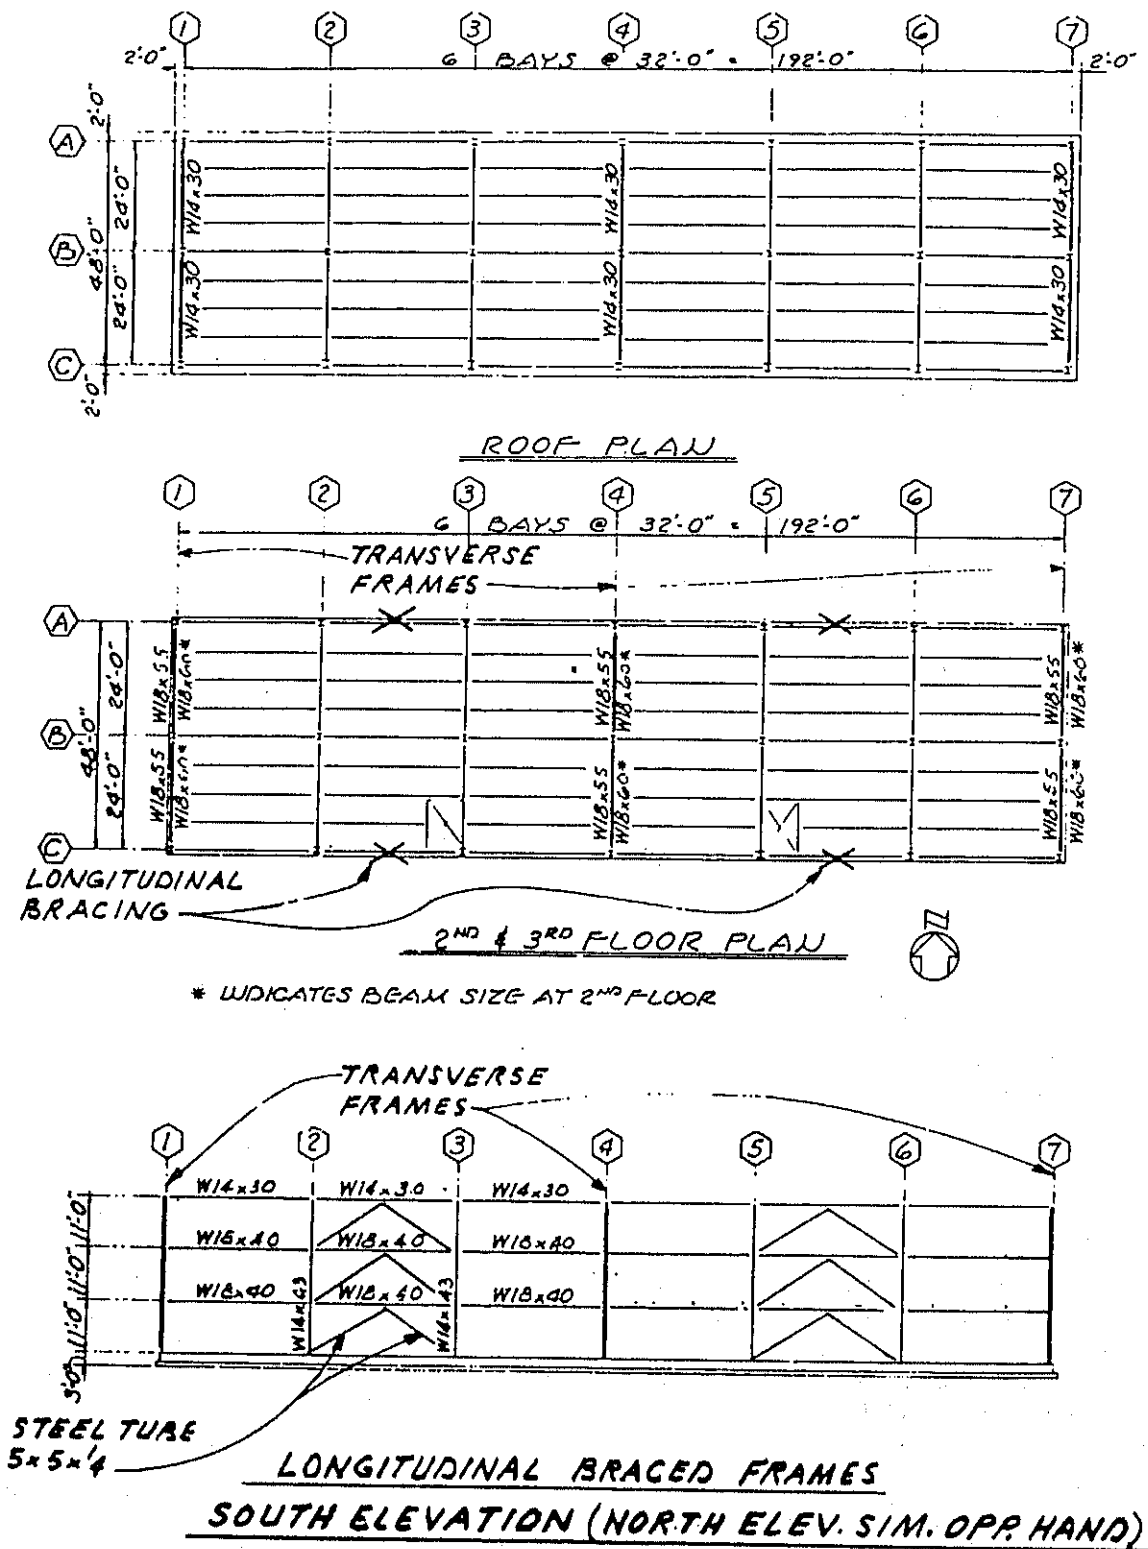 1 2 3 4 5 6 7
2'-0" 6 BAYS @ 32'-0" = 192'-0" 2'-0"
2'-0"
A
24'-0"
W14x30 W14x30 W14x30
B
48'-0"
24'-0"
W14x30 W14x30 W14x30
C
2'-0"
ROOF PLAN
1 2 3 4 5 6 7
6 BAYS @ 32'-0" = 192'-0"
TRANSVERSE
FRAMES
A
24'-0"
W18x55 W18x60* W18x55 W18x60* W18x55 W18x60*
B
48'-0"
24'-0"
W18x55 W18x60* W18x55 W18x60* W18x55 W18x60*
C
LONGITUDINAL
BRACING
2ND & 3RD FLOOR PLAN
N
* INDICATES BEAM SIZE AT 2ND FLOOR
TRANSVERSE
FRAMES
1 2 3 4 5 6 7
W14x30 W14x30 W14x30
11'-0"
W18x40 W18x40 W18x40
11'-0"
W18x40 W18x40 W18x40
11'-0"
W14x43 W14x43
3'-0"
STEEL TUBE
5x5x1/4
LONGITUDINAL BRACED FRAMES
SOUTH ELEVATION (NORTH ELEV. SIM. OPP. HAND)